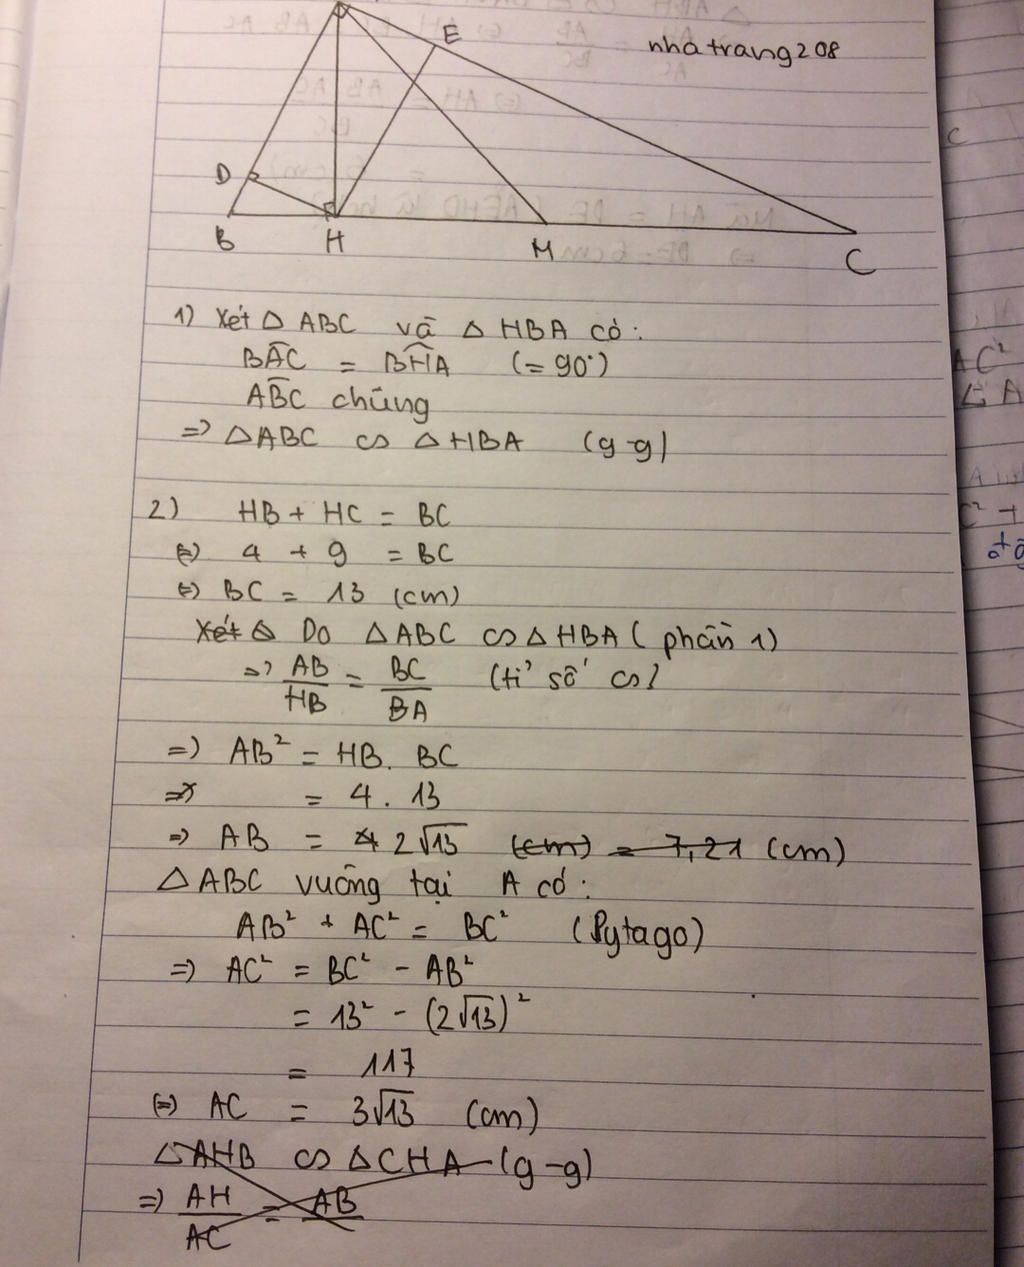 E
nhatrang208
D
B H M C
1) Xét △ ABC và △ HBA có:
BÂC = BĤA (= 90°)
AB̂C chung
=> △ABC ∽ △HBA (g-g)
2) HB + HC = BC
(=) 4 + 9 = BC
(=) BC = 13 (cm)
Xét △ Do △ABC ∽ △HBA (phần 1)
=> AB/HB = BC/BA (tỉ số ∽)
=> AB² = HB. BC
=> = 4 . 13
=> AB = 4 2√13 (cm) = 7,21 (cm)
△ABC vuông tại A có:
AB² + AC² = BC² (Pytago)
=> AC² = BC² - AB²
= 13² - (2√13)²
= 117
(=) AC = 3√13 (cm)
△AHB ∽ △CHA (g-g)
=> AH/AC = AB